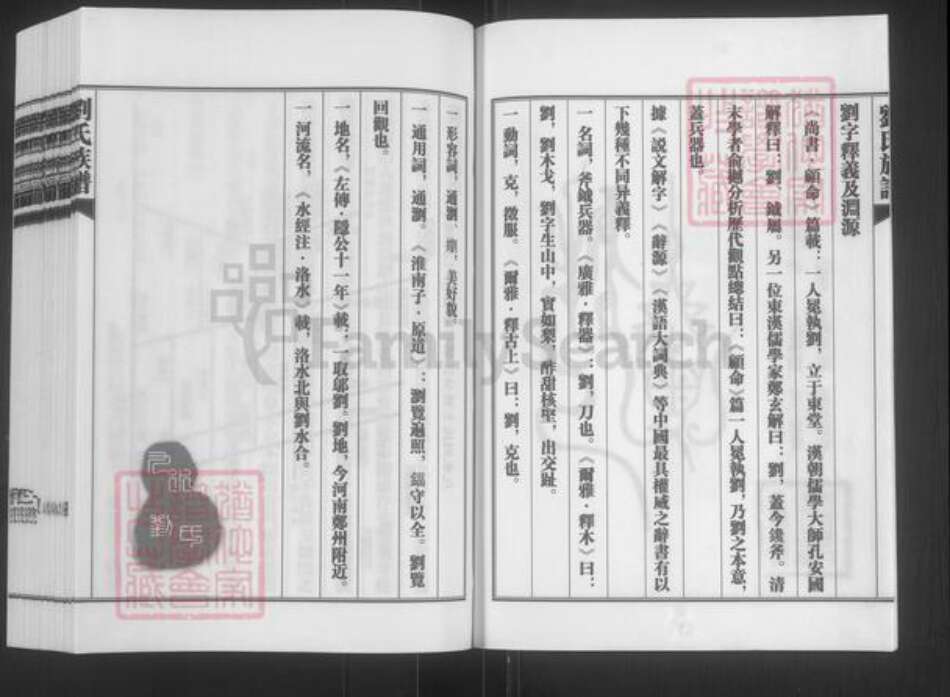 劉字釋義及淵源
《尚書·顧命》篇載：一人冕執劉，立于東堂。漢朝儒學大師孔安國
解釋曰：劉、鉞屬。另一位東漢儒學家鄭玄解曰：劉，蓋今鑱斧。清
末學者俞樾分析歷代觀點總結曰：《顧命》篇一人冕執劉，乃劉之本意，
蓋兵器也。
據《說文解字》《辭源》《漢語大詞典》等中國最具權威之辭書有以
下幾種不同异義釋。
一名詞，斧鉞兵器。《廣雅·釋器》：劉，刀也。《爾雅·釋木》曰：
劉，劉木戈，劉字生山中，實如梨，酢甜核堅，出交趾。
一動詞，克，徵服。《爾雅·釋古上》曰：劉，克也。
一形容詞，通瀏、嬼，美好貌。
一通用詞，通瀏。《淮南子·原道》：瀏覽遍照，守以全。劉覽
回觀也。
一地名，《左傳·隱公十一年》載，一取鄔劉。劉地，今河南鄭州附近。
一河流名，《水經注·洛水》載，洛水北與劉水合。
劉氏族譜
劉氏族譜
FamilySearch